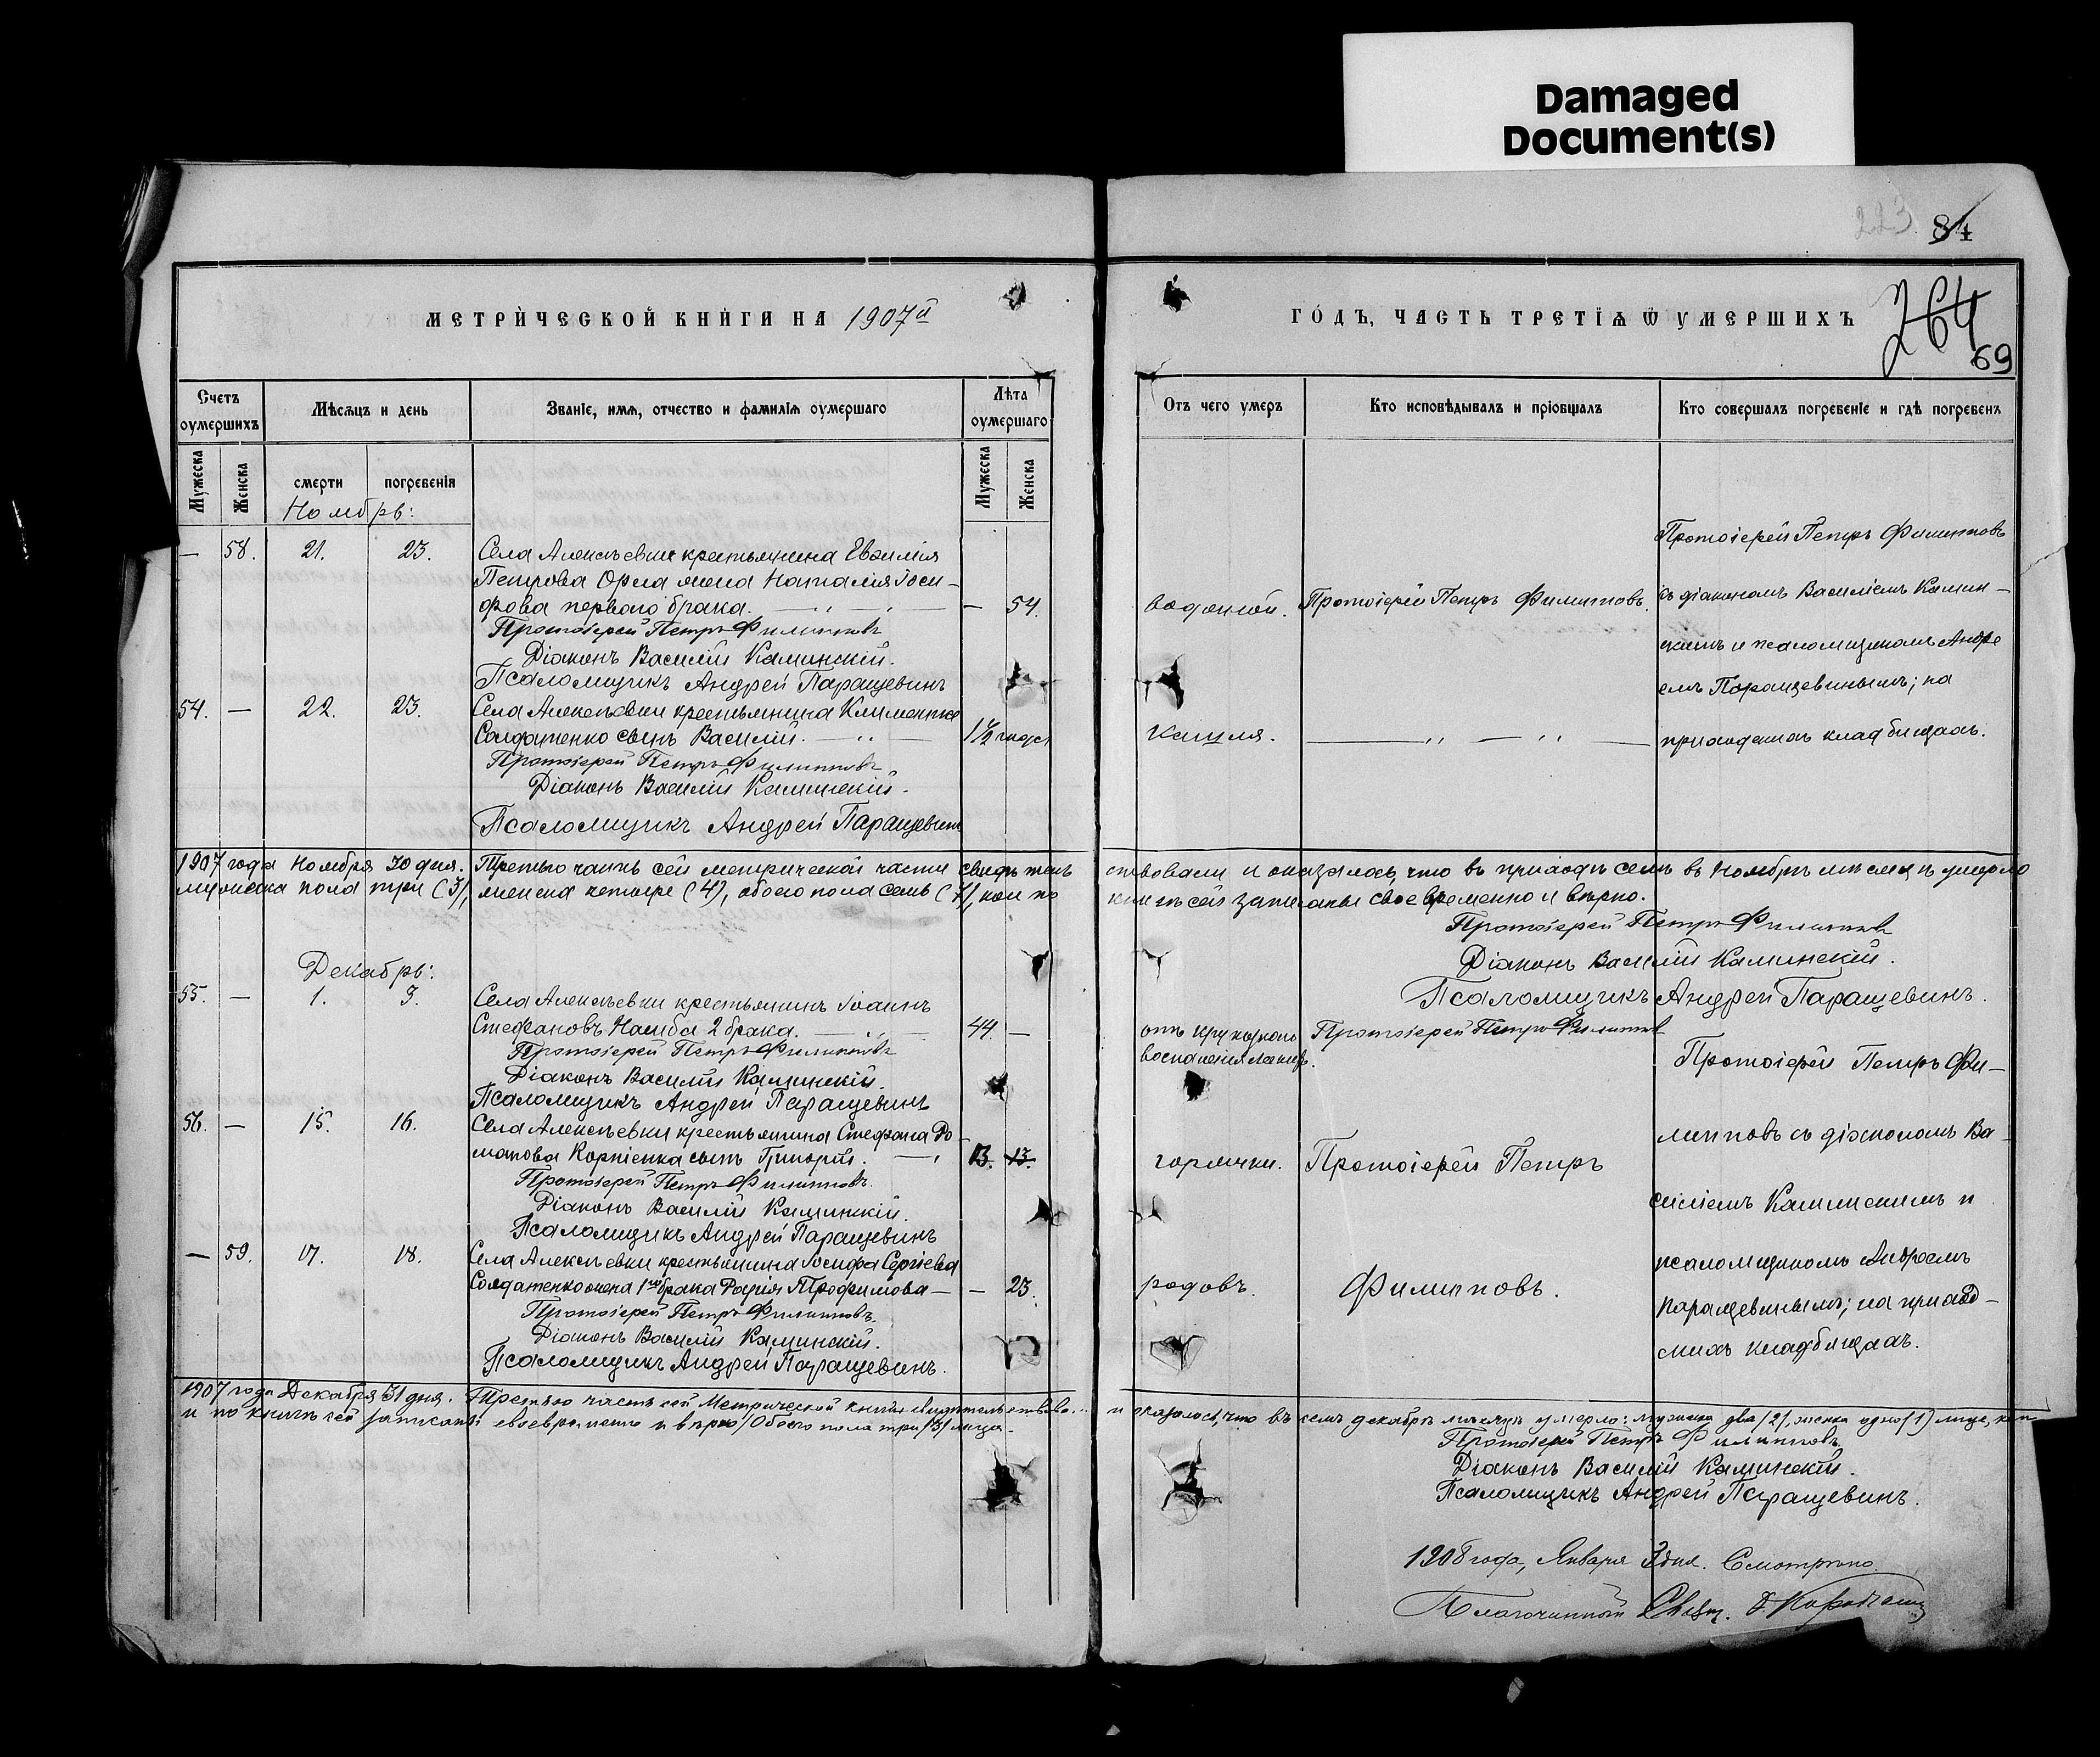 Damaged
Document(s)
223
84
МЕТРИ́ЧЕСКОЙ КНИ́ГИ НА 1907й
ГО́ДЪ, ЧАСТЬ ТРЕТІѦ Ѿ УМЕРШИХЪ
264
69
Счетъ оумершихъ
Мѣсѧцъ и день
Званіе, имѧ, отчество и фамиліѧ оумершаго
Лѣта оумершаго
Отъ чего умеръ
Кто исповѣдывалъ и пріобщалъ
Кто совершалъ погребеніе и гдѣ погребенъ
Мужеска
Женска
смерти
погребенія
Мужеска
Женска
Ноябрь:
— 58. 21. 23. Села Алексѣевки крестьянина Евѳимія
Петрова Орла жена Наталія Іоси-
фова перваго брака. — 54.
Протоіерей Петръ Филипповъ
Діаконъ Василій Каминскій.
Псаломщикъ Андрей Паращевинъ
водяной. Протоіерей Петръ Филипповъ.
Протоіерей Петръ Филипповъ
съ діакономъ Василіемъ Камин-
скимъ и псаломщикомъ Андре
емъ Паращевинымъ; на
приходскихъ кладбищахъ.
54. — 22. 23. Села Алексѣевки крестьянина Климента
Солдатенко сынъ Василій. 1½ года
Протоіерей Петръ Филипповъ
Діаконъ Василій Каминскій.
Псаломщикъ Андрей Паращевинъ
кашля. — ,, — ,, —
1907 года Ноября 30 дня. Третью часть сей метрической части свидѣтель
ствовали и оказалось, что въ приходѣ семъ въ Ноябрѣ мѣсяцѣ умерло
мужеска пола три (3), женска четыре (4), обоего пола семь (7), кои по
книгѣ сей записаны своевременно и вѣрно.
Протоіерей Петръ Филипповъ
Діаконъ Василій Каминскій.
Псаломщикъ Андрей Паращевинъ.
Декабрь:
55. — 1. 3. Села Алексѣевки крестьянинъ Іоаннъ
Стефановъ 2 брака. 44. —
Протоіерей Петръ Филипповъ
Діаконъ Василій Каминскій.
Псаломщикъ Андрей Паращевинъ
отъ крупознаго
воспаленія легкихъ.
Протоіерей Петръ Филипповъ
Протоіерей Петръ Фи-
липповъ съ діакономъ Ва-
силіемъ Каминскимъ и
псаломщикомъ Андреемъ
Паращевинымъ; на приход-
скихъ кладбищахъ.
56. — 15. 16. Села Алексѣевки крестьянина Стефана Ро-
манова Корніенка сынъ Григорій. 13. 13.
Протоіерей Петръ Филипповъ.
Діаконъ Василій Каминскій.
Псаломщикъ Андрей Паращевинъ
горячки. Протоіерей Петръ
— 59. 17. 18. Села Алексѣевки крестьянина Іосифа Сергіева
Солдатенко жена 1го брака Дарія Трофимова — — 23.
Протоіерей Петръ Филипповъ.
Діаконъ Василій Каминскій.
Псаломщикъ Андрей Паращевинъ.
родовъ. Филипповъ.
1907 года Декабря 31 дня. Третью часть сей Метрической книги свидѣтельствова..
и оказалось, что въ семъ декабрѣ мѣсяцѣ умерло: мужска два /2/, женска одно /1/ лице, кои
и по книгѣ сей записаны своевременно и вѣрно /Обоего пола три /3/ лица.
Протоіерей Петръ Филипповъ.
Діаконъ Василій Каминскій.
Псаломщикъ Андрей Паращевинъ.
1908 года, Января 3 дня. Смотрѣно
Благочинный Свящ.